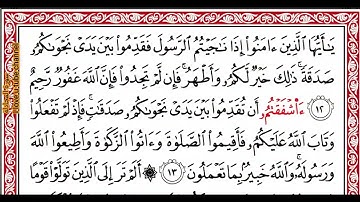 يَٰٓأَيُّهَا ٱلَّذِينَ ءَامَنُوٓا۟ إِذَا نَٰجَيْتُمُ ٱلرَّسُولَ فَقَدِّمُوا۟ بَيْنَ يَدَىْ نَجْوَىٰكُمْ
صَدَقَةً ۚ ذَٰلِكَ خَيْرٌ لَّكُمْ وَأَطْهَرُ ۚ فَإِن لَّمْ تَجِدُوا۟ فَإِنَّ ٱللَّهَ غَفُورٌ رَّحِيمٌ
١٢ ءَأَشْفَقْتُمْ أَن تُقَدِّمُوا۟ بَيْنَ يَدَىْ نَجْوَىٰكُمْ صَدَقَٰتٍ ۚ فَإِذْ لَمْ تَفْعَلُوا۟
وَتَابَ ٱللَّهُ عَلَيْكُمْ فَأَقِيمُوا۟ ٱلصَّلَوٰةَ وَءَاتُوا۟ ٱلزَّكَوٰةَ وَأَطِيعُوا۟ ٱللَّهَ
وَرَسُولَهُۥ ۚ وَٱللَّهُ خَبِيرٌۢ بِمَا تَعْمَلُونَ ١٣ ۞ أَلَمْ تَرَ إِلَى ٱلَّذِينَ تَوَلَّوْا۟ قَوْمًا